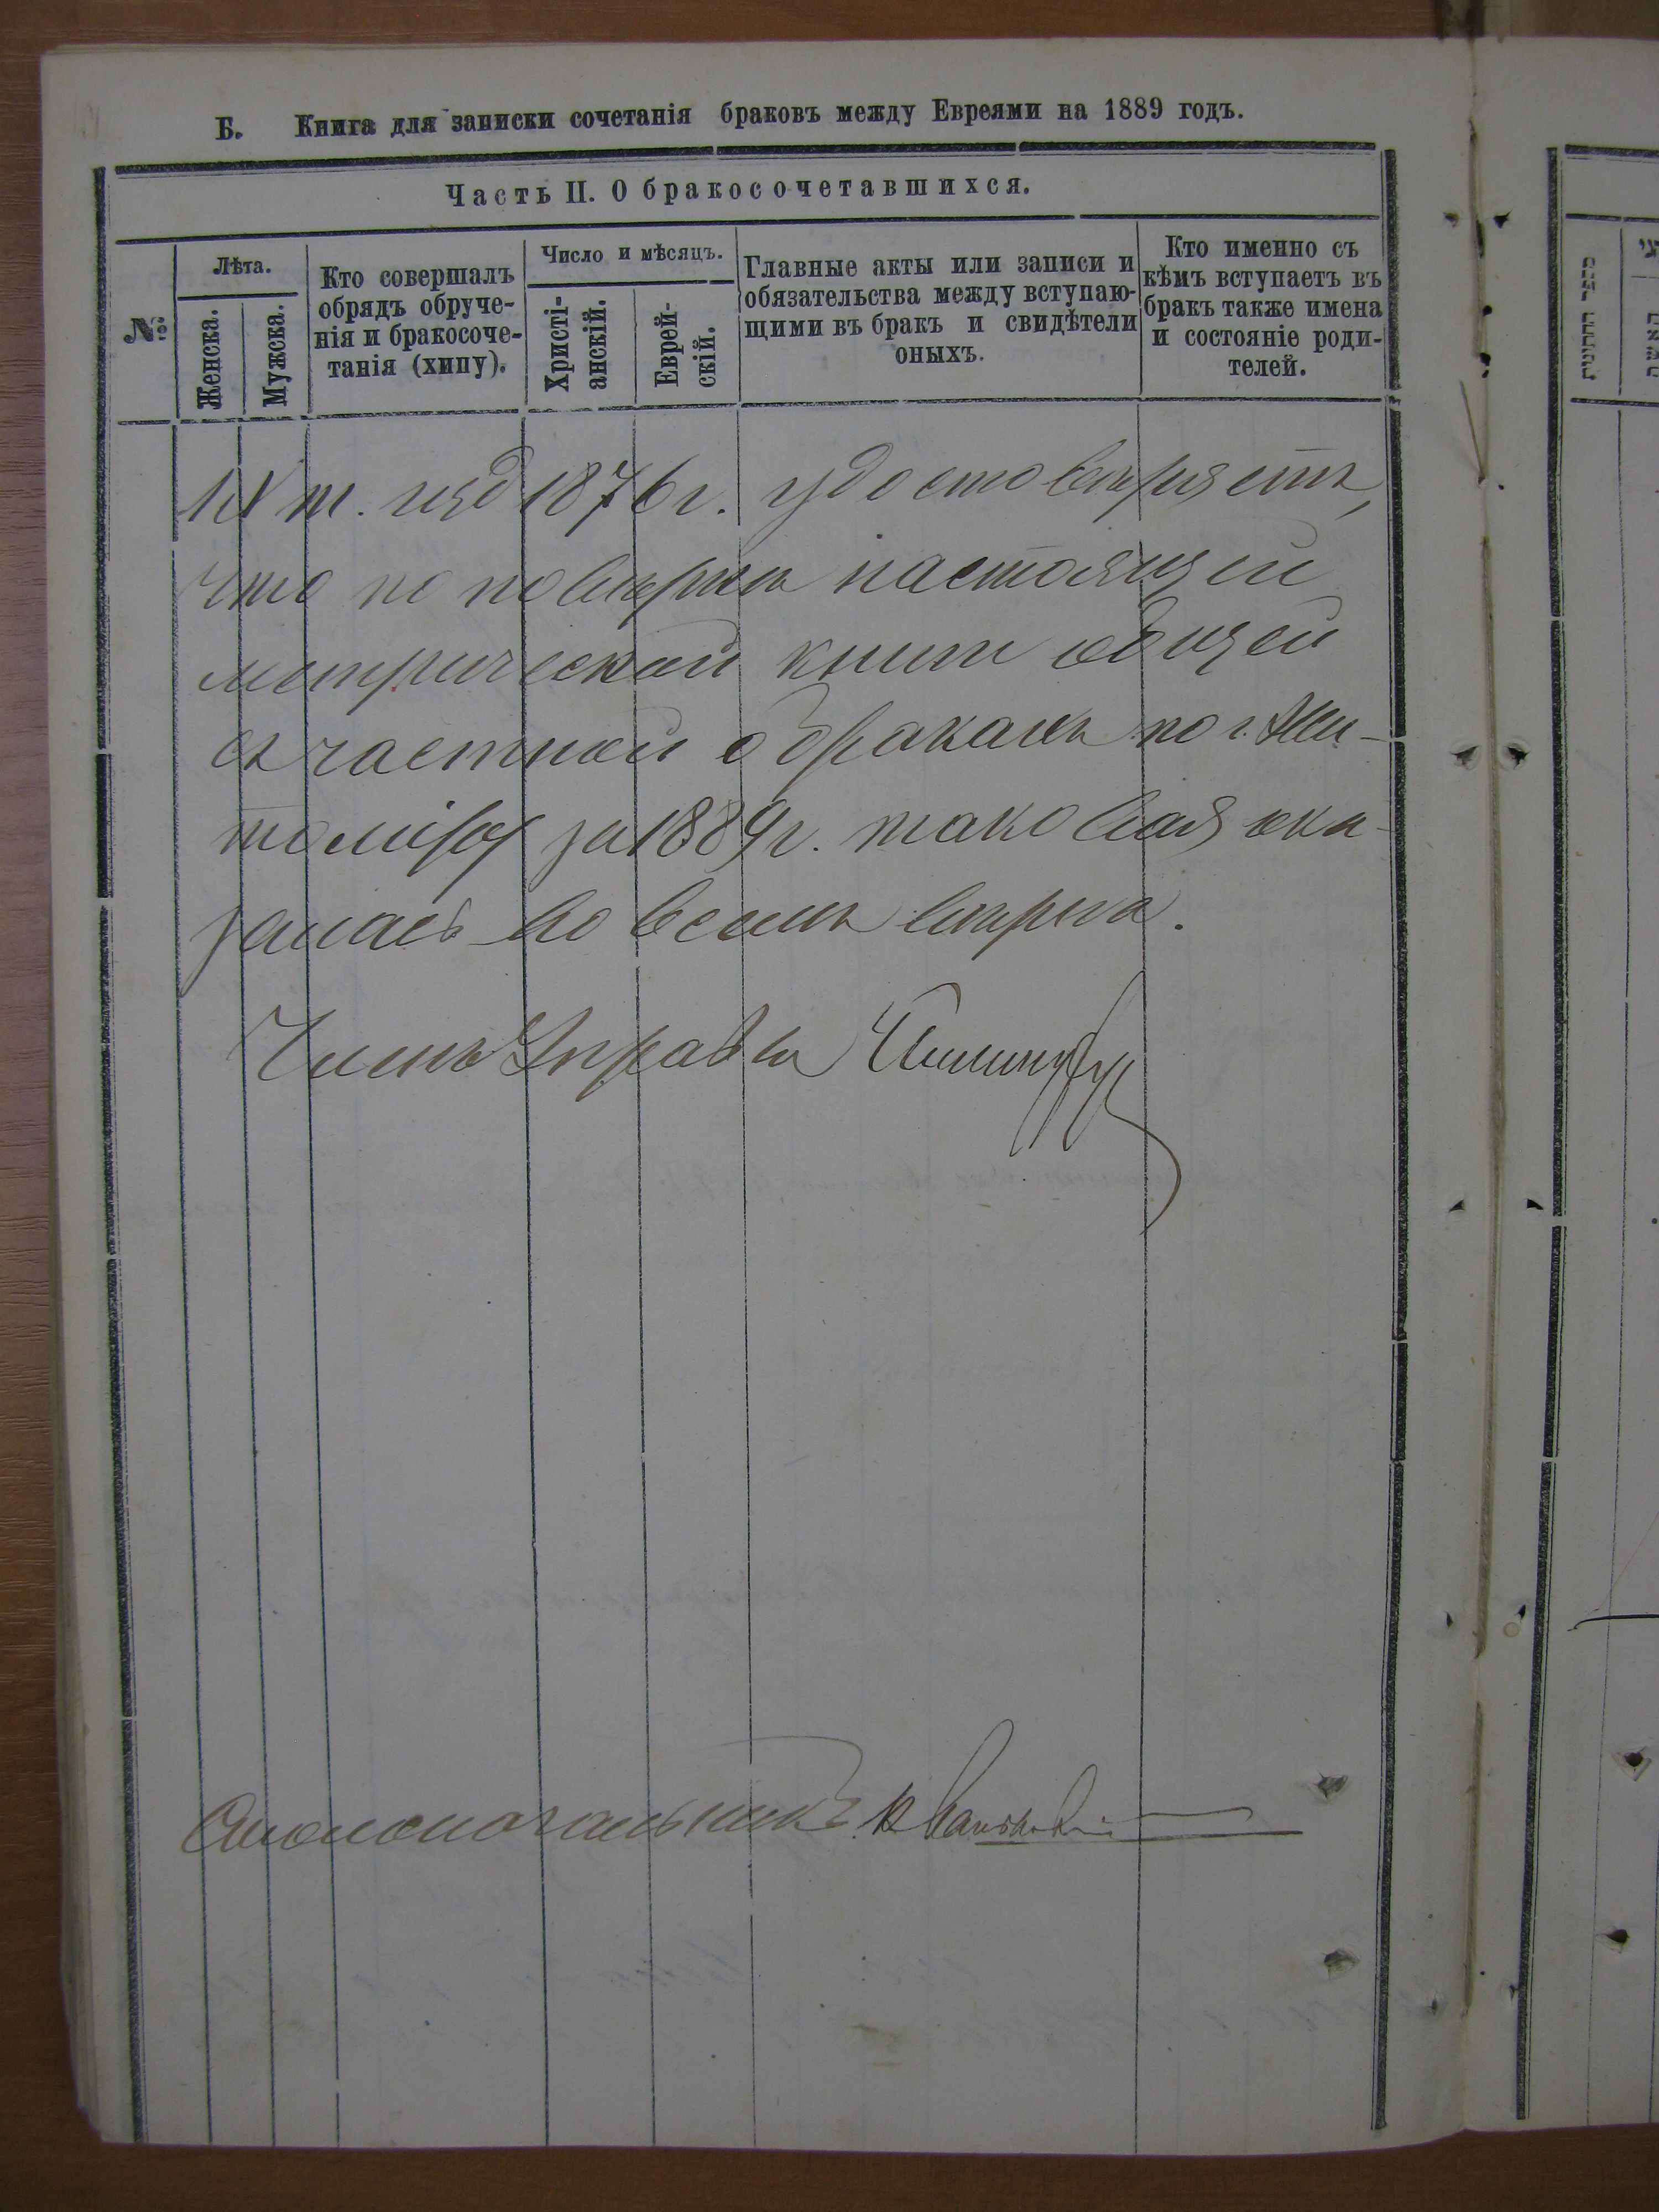 Б. Книга для записки сочетанія браковъ между Евреями на 1889 годъ.
Часть II. О бракосочетавшихся.
№
Лѣта.
Женска.
Мужска.
Кто совершалъ
обрядъ обруче-
нія и бракосоче-
танія (хипу).
Число и мѣсяцъ.
Христі-
анскій.
Еврей-
скій.
Главные акты или записи и
обязательства между вступаю-
щими въ бракъ и свидѣтели
оныхъ.
Кто именно съ
кѣмъ вступаетъ въ
бракъ также имена
и состояніе роди-
телей.
IX т. изд 1876 г. удостовѣряетъ,
что по повѣркѣ настоящей
метрической книги общей
съ частной о бракахъ по г. Жи-
томіру за 1889 г. таковая ока-
залась во всемъ вѣрна.
Членъ Управы
Столоначальникъ